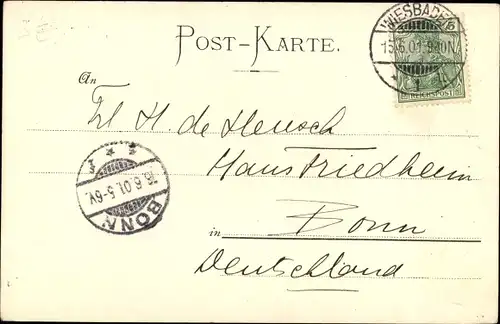 POST-KARTE.
WIESBADEN
15.6.01. 9-10N
1
5
REICHSPOST
An
Frl H. de Heusch
Haus Friedheim
16.6.01. 5-6V.
BONN
in Bonn
Deutschland